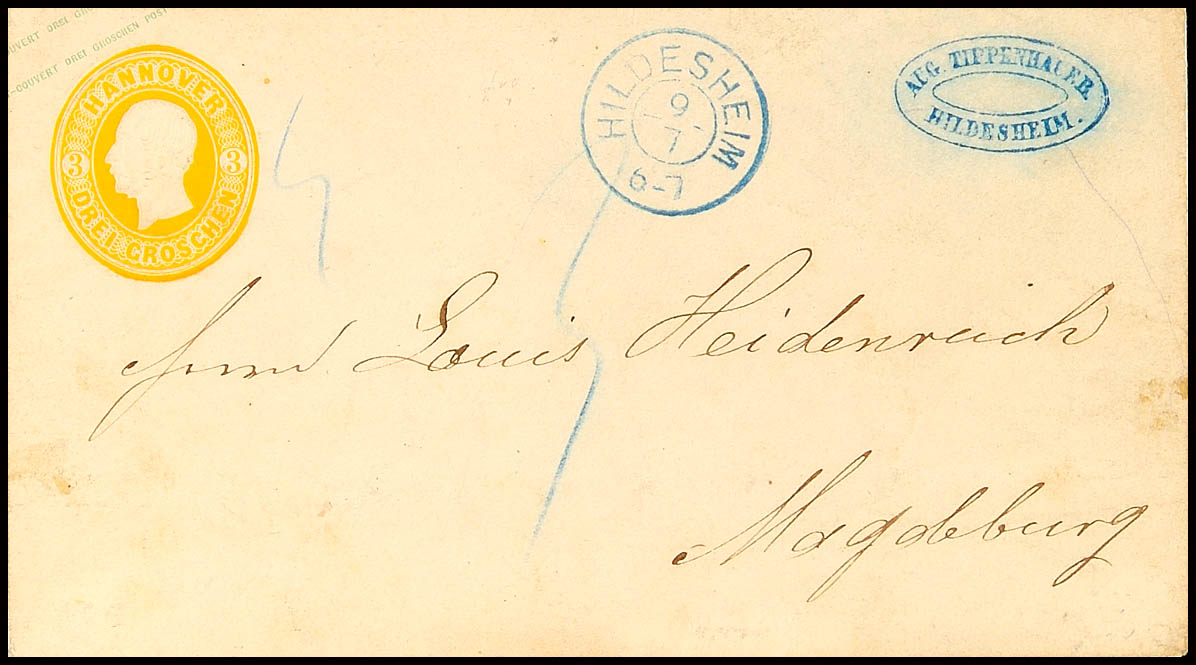 COUVERT DREI GROSCHEN
-COUVERT DREI GROSCHEN POST
HANNOVER
3 3
DREI GROSCHEN
HILDESHEIM
9
7
6-7
AUG. TIPPENHAUER.
HILDESHEIM.
Herrn Louis Heidenreich
Magdeburg